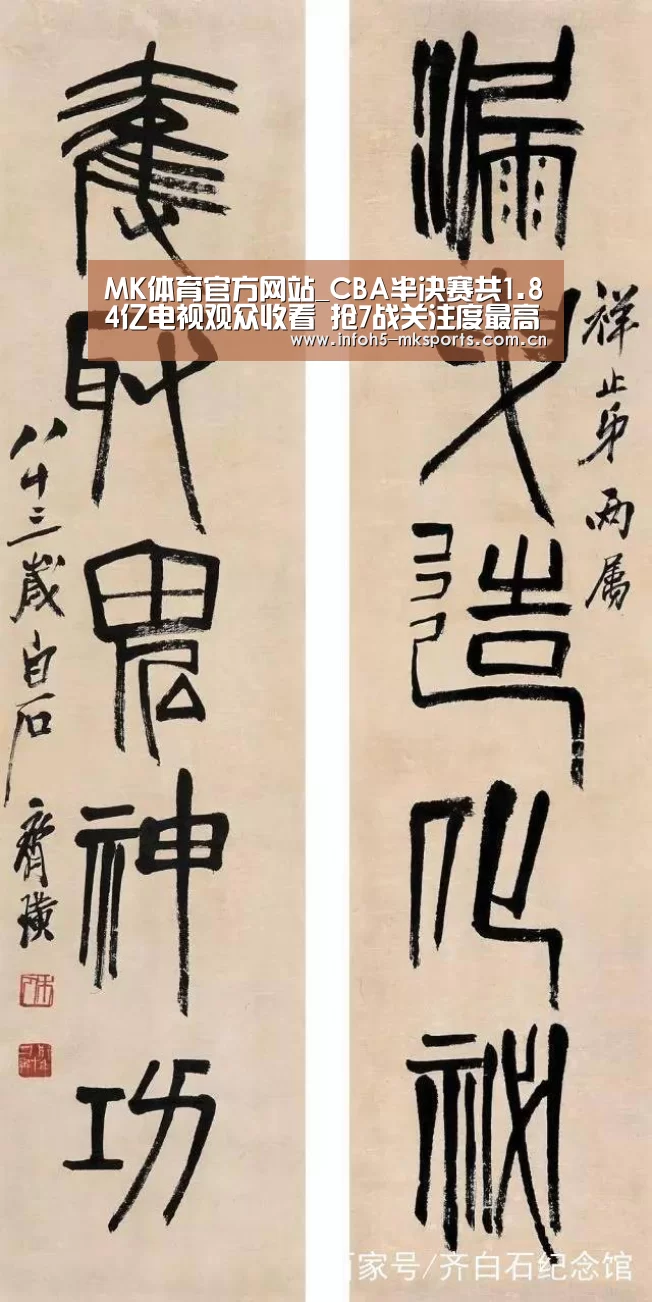 MK体育官方网站_CBA半决赛共1.8
4亿电视观众收看 抢7战关注度最高
www.infoh5-mksports.com.cn
祥止弟两属
漏造化秘
奪取鬼神功
八十三歲白石齊璜
百家号/齐白石纪念馆